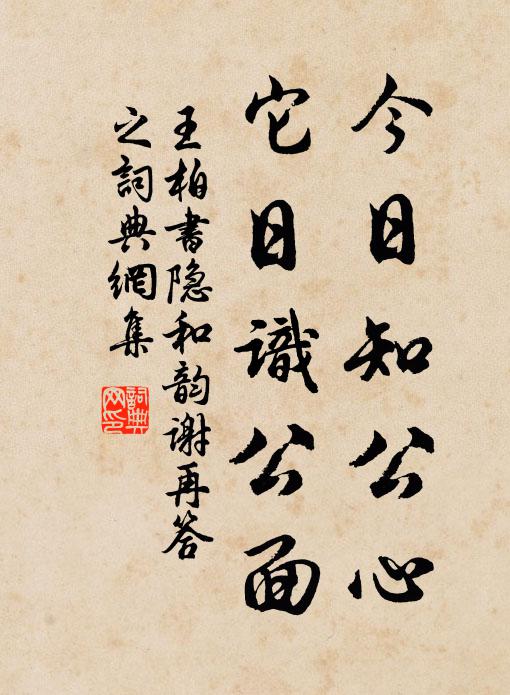 今日知公心
它日識公面
王柏書隐和韵谢再答
之詞典網集
詞典網印